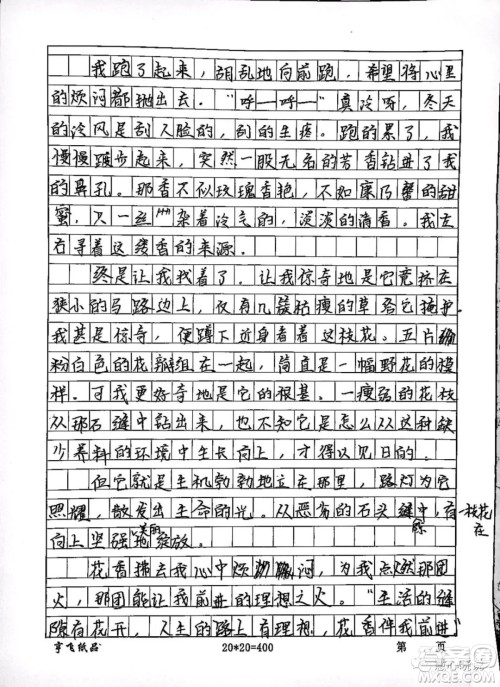 我跑了起来，胡乱地向前跑，希望将心里
的烦闷都抛出去。“呼——呼——”真冷呀，冬天
的冷风是刮人脸的，刮的生疼。跑的累了，我
慢慢踱步起来，突然一股无名的芳香钻进了我
的鼻孔。那香不似玫瑰香艳，不如康乃馨的甜
蜜，只一丝丝夹杂着冷气的，淡淡的清香。我左
右寻着这缕香的来源。
终是让我找着了，让我惊奇地是它竟挤在
狭小的马路边上，仅有几簇枯瘦的草给它掩护。
我甚是惊奇，便蹲下近身看着这枝花。五片
粉白色的花瓣组在一起，简直是一幅野花的模
样。可我更好奇地是它的根基。一瘦弱的花枝
从那石缝中钻出来，也不知它是怎么从这种缺
少养料的环境中生长向上，才得以见日的。
但它就是生机勃勃地立在那里，路灯为它
照耀，散发出生命的光。从恶劣的石头缝中，有一枝花在
向上坚强美丽地绽放。
花香拂去我心中烦闷，为我点燃那团
火，那团能让我前进的理想之火。“生活的缝
隙有花开，人生的路上有理想，花香伴我前进”
宇飞纸品
20*20=400
第 页